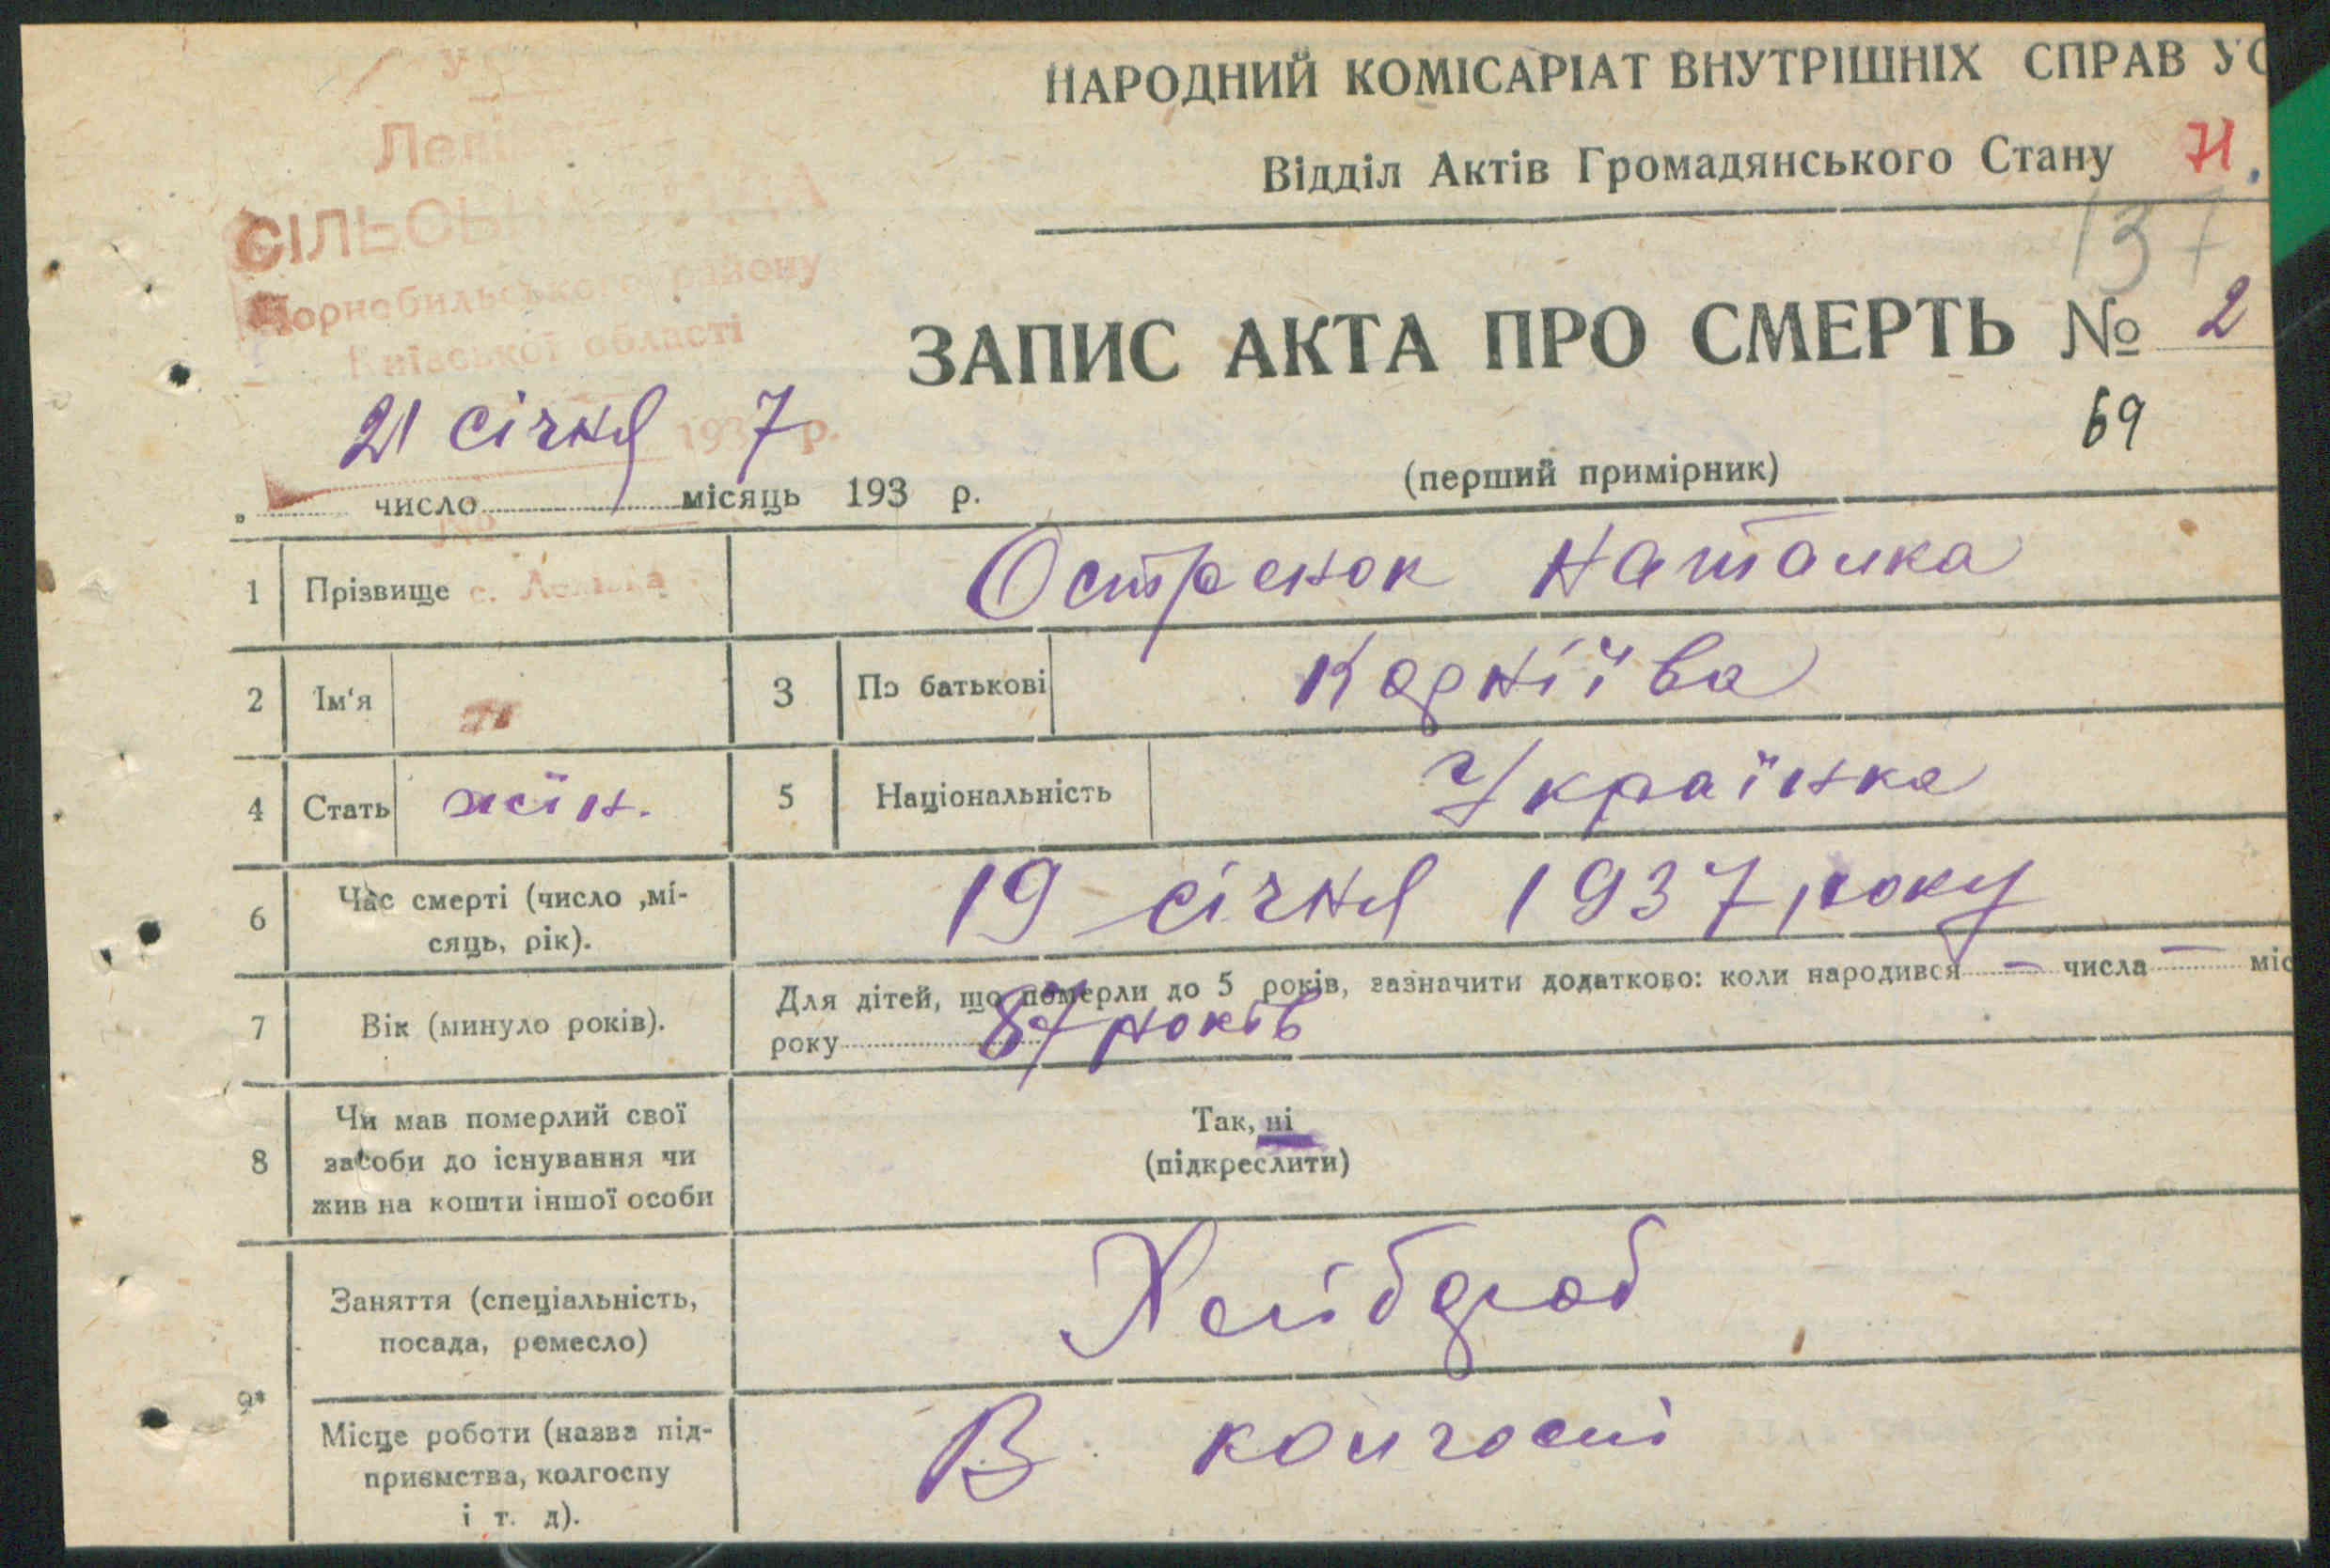 НАРОДНИЙ КОМІСАРІАТ ВНУТРІШНІХ СПРАВ УС
Відділ Актів Громадянського Стану Н.
137
СІЛЬСЬКА РАДА
Чорнобильського району
Київської області
ЗАПИС АКТА ПРО СМЕРТЬ № 2
69
21 січня 1937 р.
(перший примірник)
" число місяць 193 р.
№
1 Прізвище Остренок Наталка
2 Ім'я 3 По батькові Карніїва
4 Стать жін. 5 Національність Українка
6 Час смерті (число ,мі-
сяць, рік).
19 січня 1937 року
7 Вік (минуло років).
Для дітей, що померли до 5 років, зазначити додатково: коли народився – числа – міс
року 87 років
8 Чи мав померлий свої
засоби до існування чи
жив на кошти іншої особи
Так, ні
(підкреслити)
9* Заняття (спеціальність,
посада, ремесло)
Хлібороб
Місце роботи (назва під-
приємства, колгоспу
і т. д).
В колгоспі